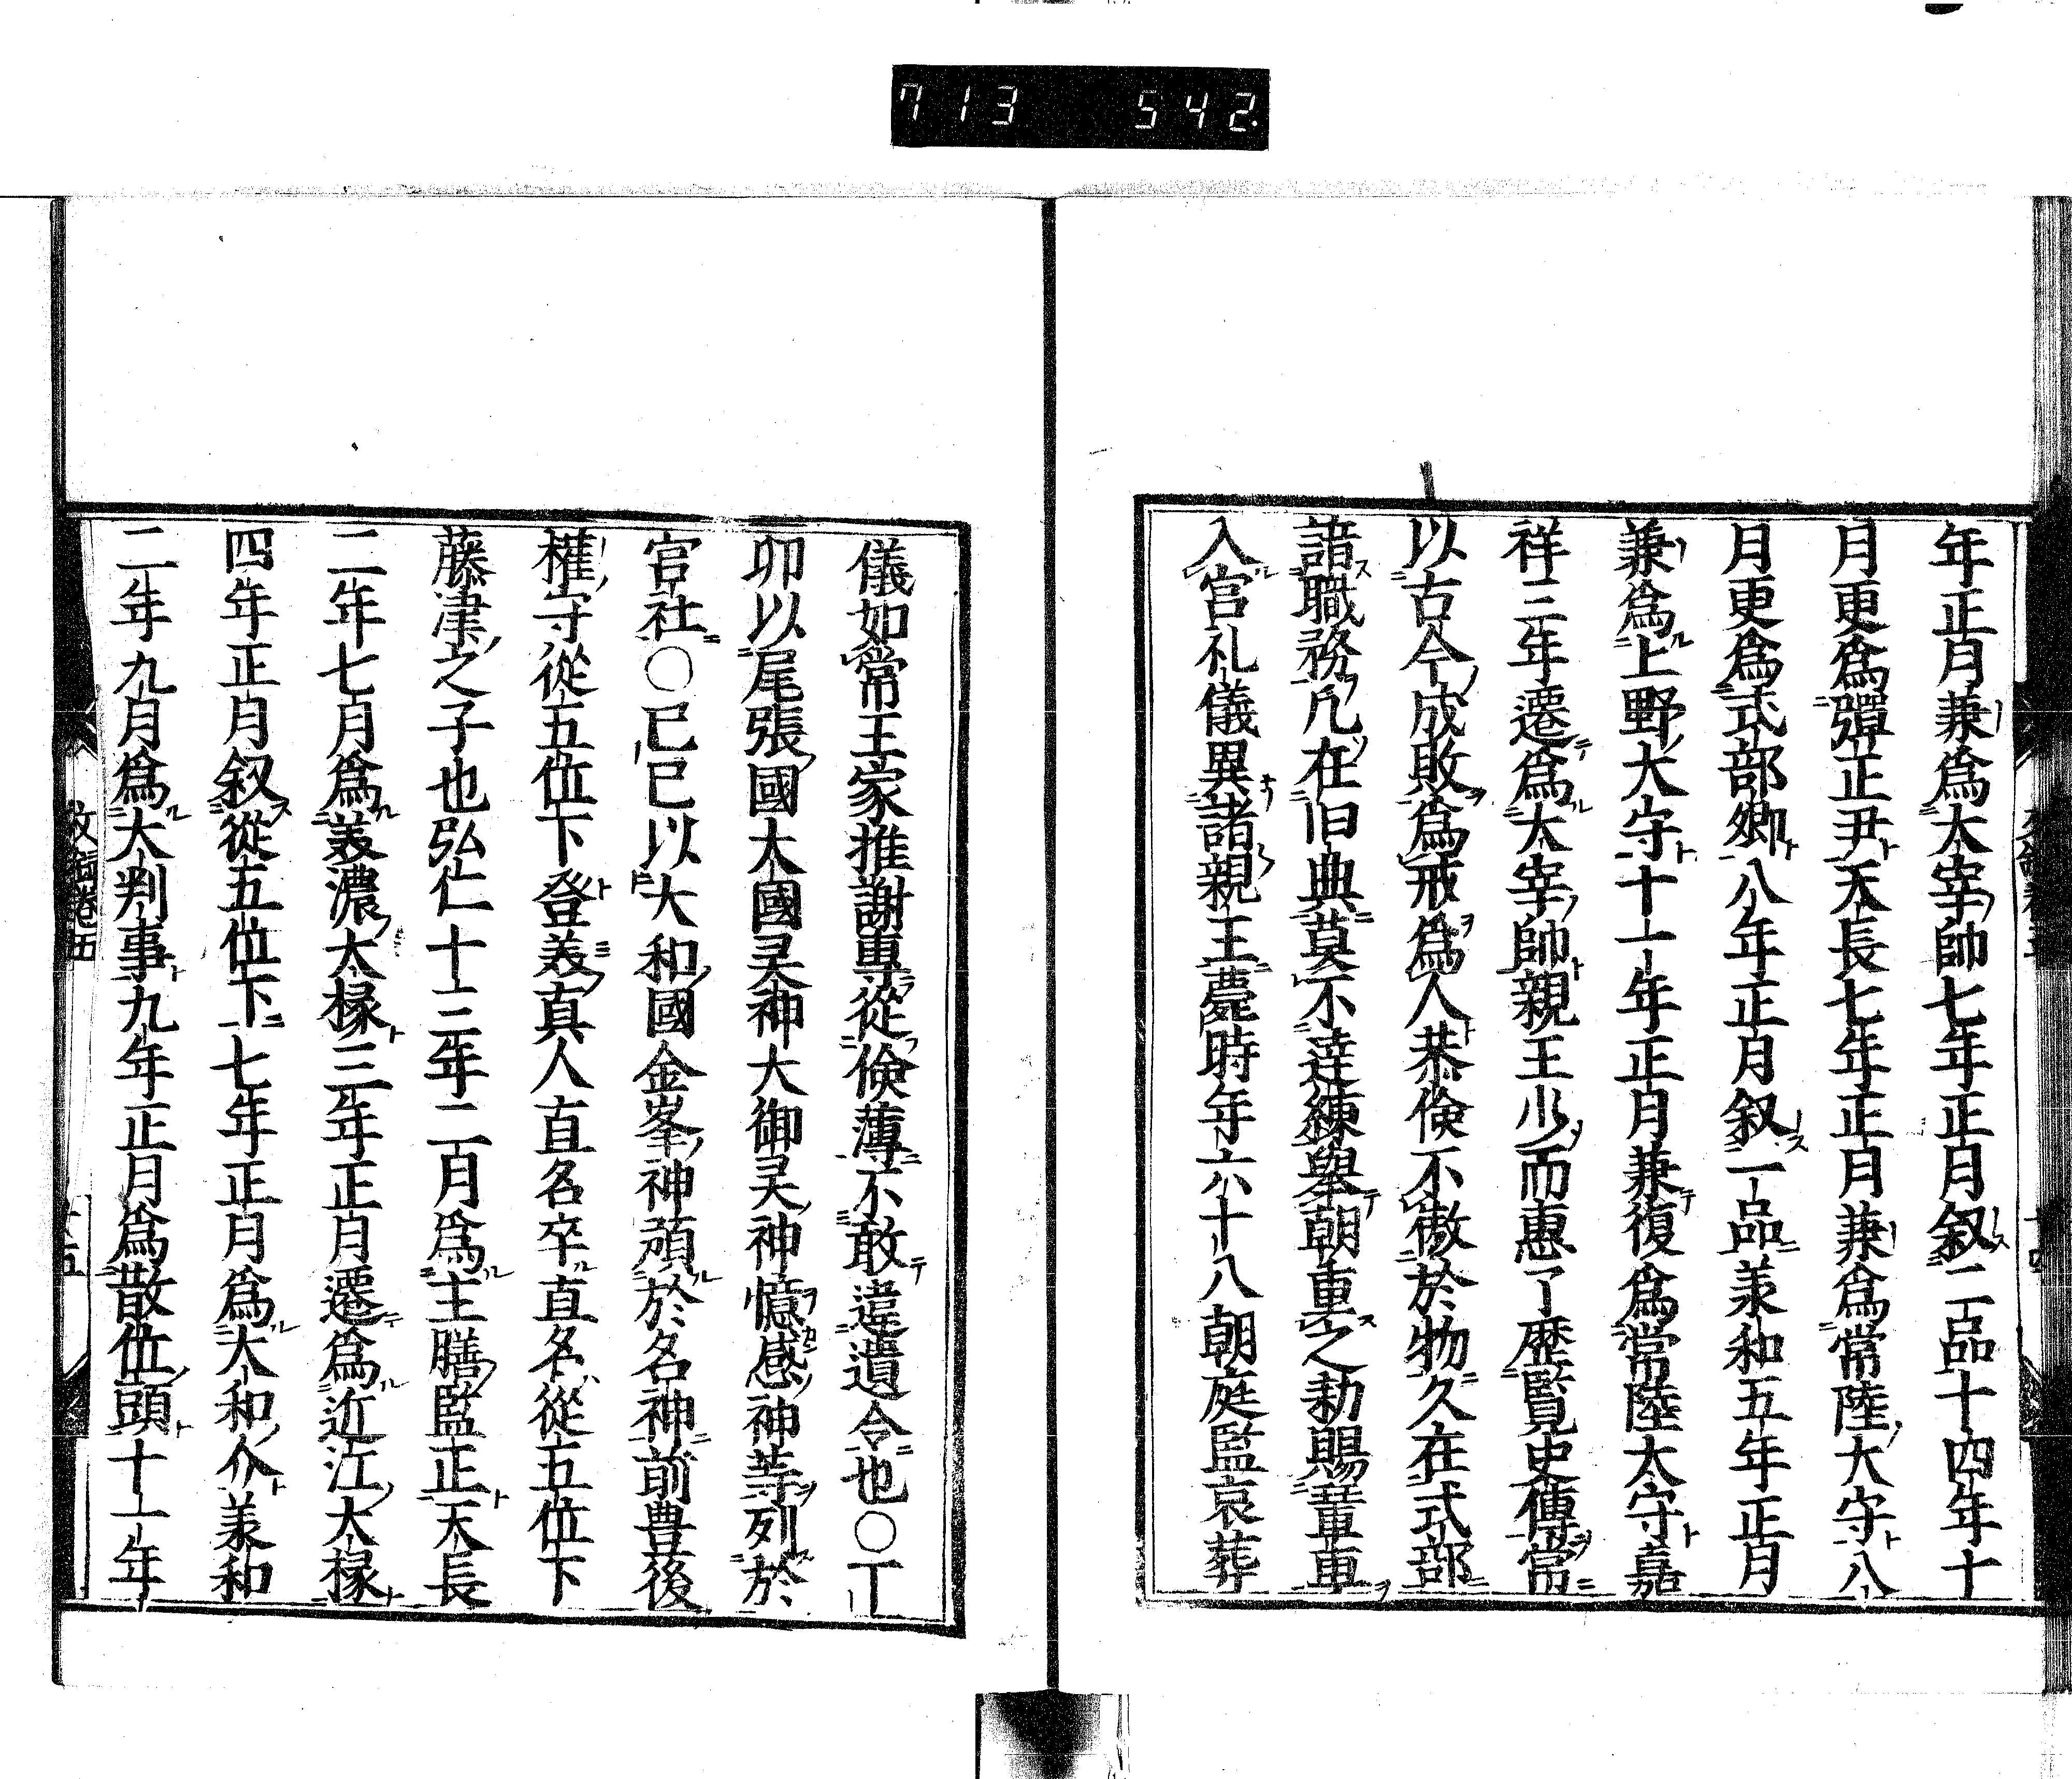 713 542.
年正月兼爲太宰帥七年正月叙二品十四年十
月更爲彈正尹天長七年正月兼爲常陸大守八
月更爲式部卿八年正月叙一品羕和五年正月
兼爲上野大守十一年正月兼復爲常陸太守嘉
祥三年遷爲太宰帥親王少而惠了歷覧史傳常
以古今成敗爲戒爲人恭儉不傲於物久在式部
諳職務凡在旧典莫不達練擧朝重之勅賜輦車
入宮礼儀異諸親王薨時年六十八朝庭監哀葬
儀如常王家推謝專從儉薄不敢違遺令也〇丁
卯以尾張國大國灵神大御灵神憶感神等列於
官社〇己巳以大和國金峯神預於名神前豊後
權守從五位下登美真人直名卒直名從五位下
藤津之子也弘仁十三年二月爲主膳監正天長
二年七月爲美濃大掾三年正月遷爲近江大掾
四年正月叙從五位下七年正月爲大和介羕和
二年九月爲大判事九年正月爲散位頭十一年